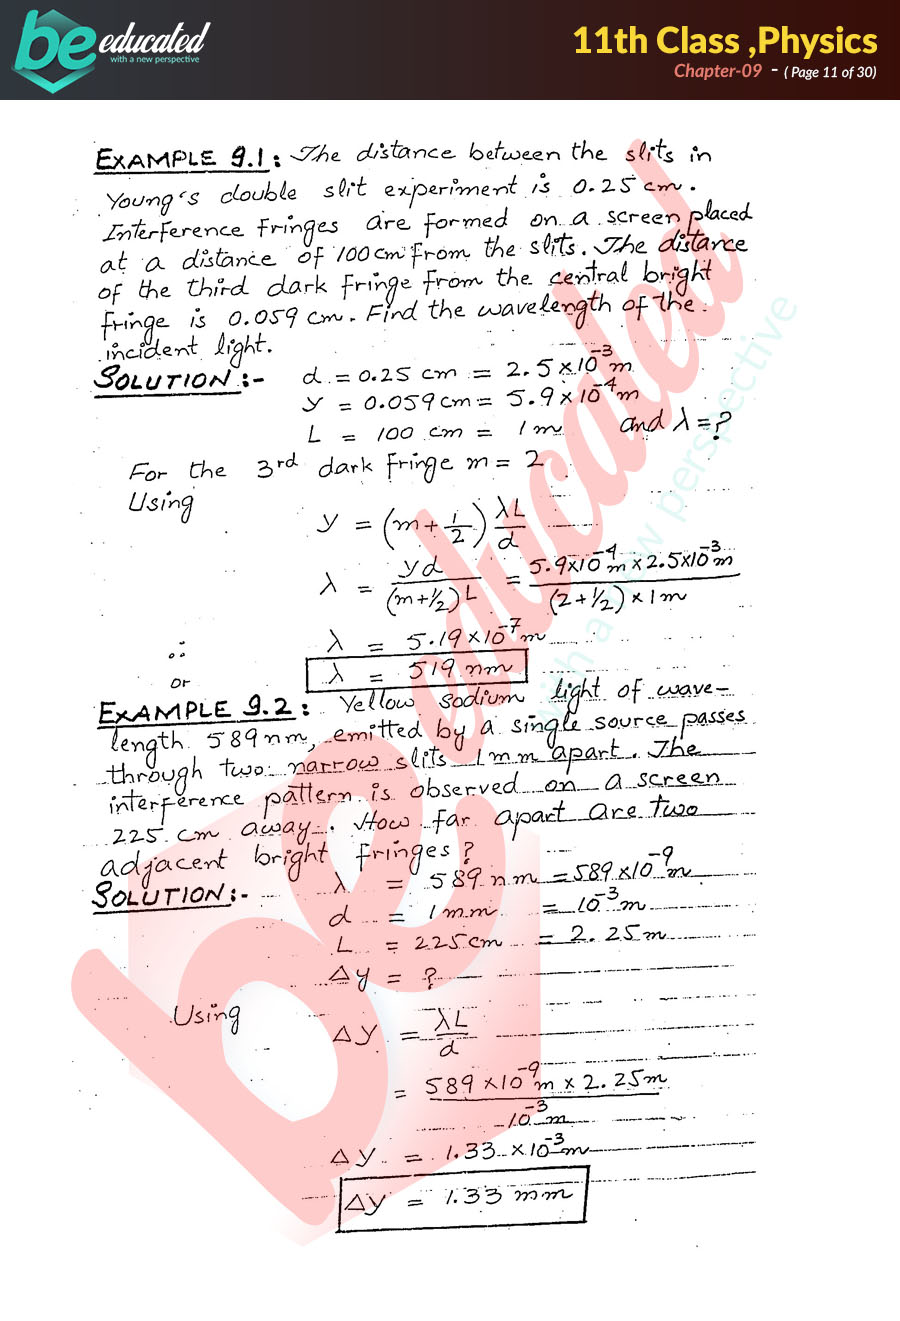 be educated
with a new perspective
11th Class ,Physics
Chapter-09 - ( Page 11 of 30)
EXAMPLE 9.1: The distance between the slits in
Young's double slit experiment is 0.25 cm.
Interference Fringes are formed on a screen placed
at a distance of 100 cm from the slits. The distance
of the third dark fringe from the central bright
fringe is 0.059 cm. Find the wavelength of the
incident light.
SOLUTION:- d = 0.25 cm = 2.5×10⁻³ m
y = 0.059 cm = 5.9×10⁻⁴ m
L = 100 cm = 1 m and λ = ?
For the 3rd dark fringe m = 2
Using
y = (m + 1/2) λL/d
λ = yd/(m+1/2)L = 5.9×10⁻⁴ m × 2.5×10⁻³ m/(2+1/2)×1m
∴ λ = 5.19×10⁻⁷ m
or λ = 519 nm
EXAMPLE 9.2: Yellow sodium light of wave-
length 589 nm, emitted by a single source passes
through two narrow slits 1 mm apart. The
interference pattern is observed on a screen
225 cm away. How far apart are two
adjacent bright fringes?
SOLUTION:- λ = 589 nm = 589×10⁻⁹ m
d = 1 mm = 10⁻³ m
L = 225 cm = 2.25 m
Δy = ?
Using
ΔY = λL/d
= 589×10⁻⁹ m × 2.25 m/10⁻³ m
ΔY = 1.33×10⁻³ m
ΔY = 1.33 mm
be educated
with a new perspective